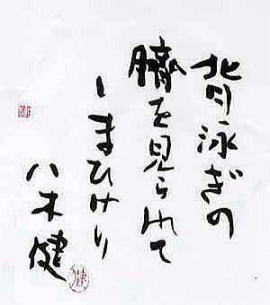 背泳ぎの
臍を見られて
しまひけり
八木健